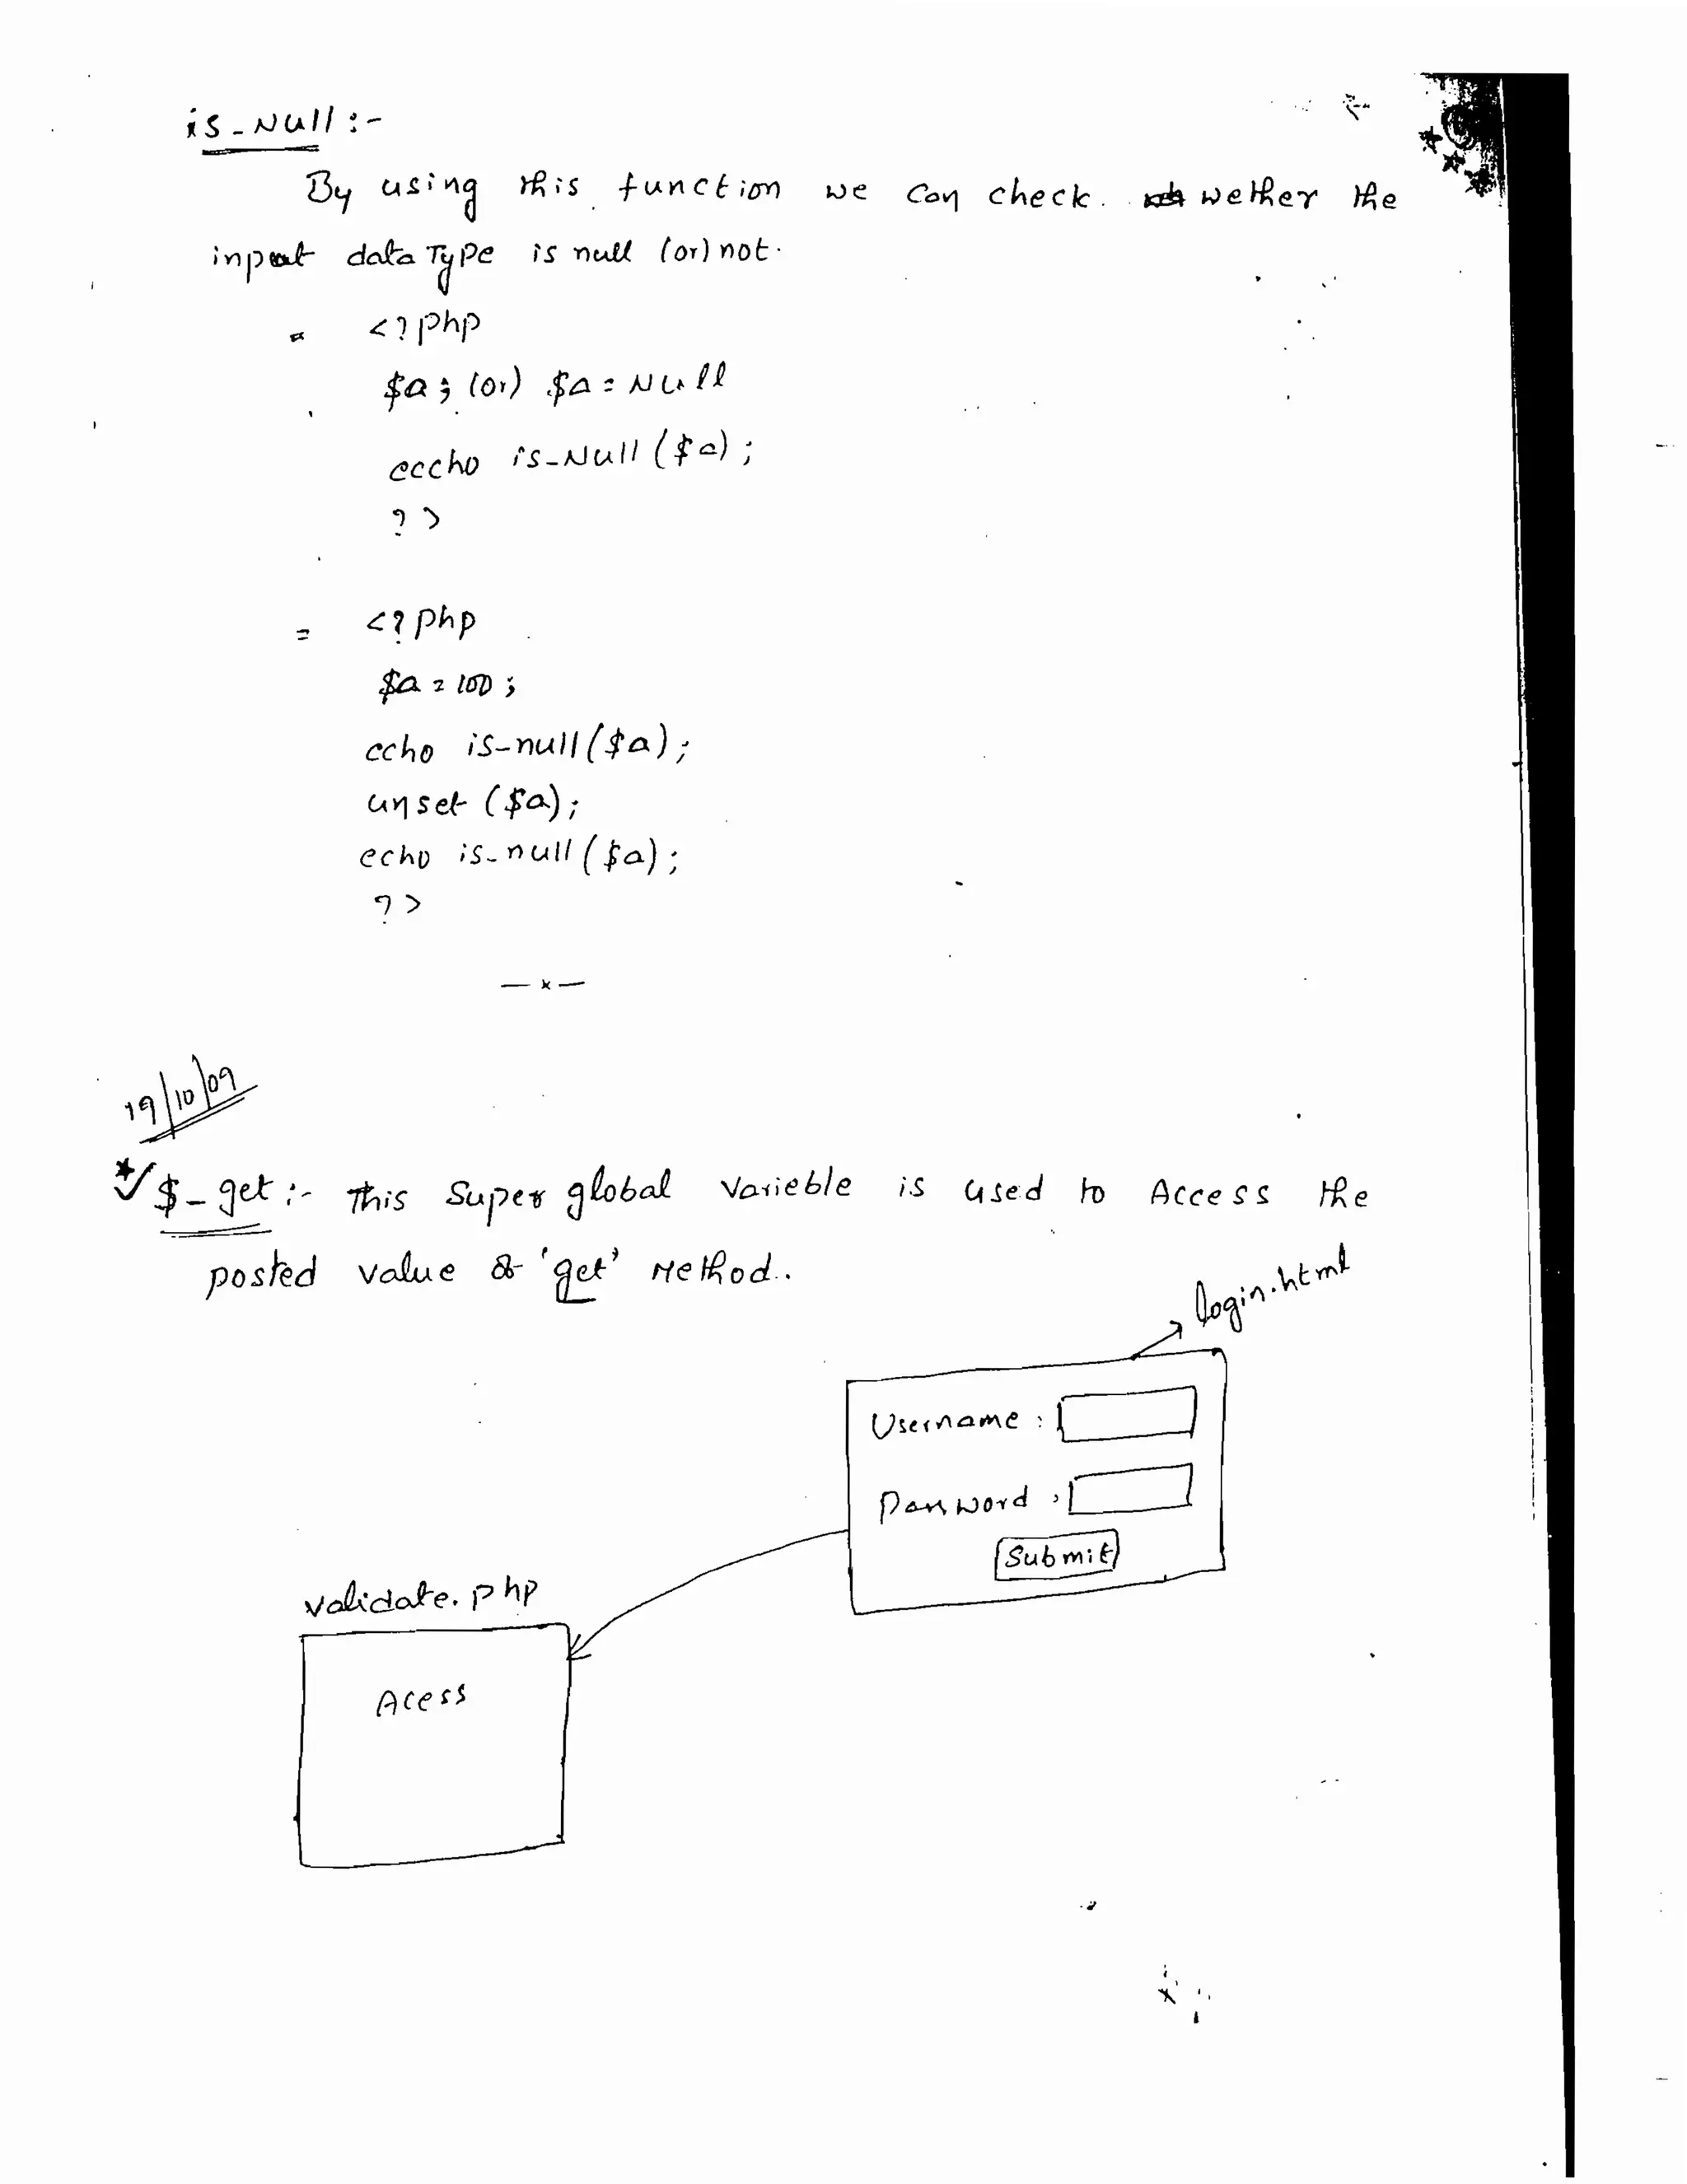 is_Null :-
By using this function we can check wether the
input data Type is null (or) not.
= <?php
$a; (or) $a = Null
eccho is_Null ($a);
?>
= <?php
$a = 100;
echo is_null($a);
unset ($a);
echo is_null($a);
?>
— x —
19/10/09
$_get :- This Super global Varieble is used to Access the
posted value of 'get' Method.
login.html
Username :
Password :
Submit
validate.php
Acess